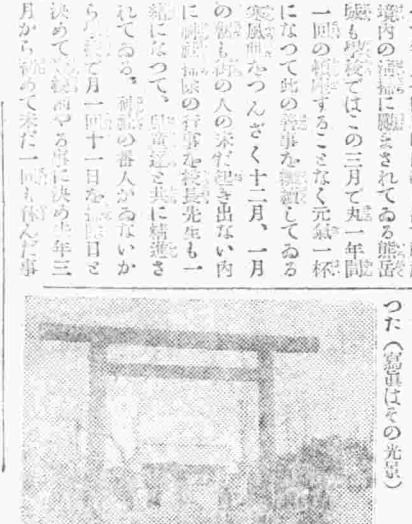 境内の清掃に励まされてゐる熊岳
城も學校ではこの三月で丸一年間
一回の缺席することなく元氣一杯
になつて此の行事を繼續してゐる
寒風面をつんざく十二月、一月
の朝も街の人の未だ起き出ない内
に神社掃除の行事を校長先生も一
緒になつて、兒童達と共に精進さ
れてゐる。神社の番人がゐないか
ら 月一回十一日を 日と
決めて やる事に決め 年三
月から初めて未だ一回も休んだ事
つた（寫眞はその光景）